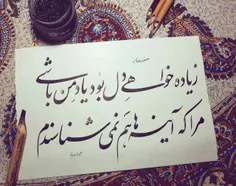 زیاده خواهی دل بود یاد من باشی
مرا که آینه ها هم نمی شناسندم